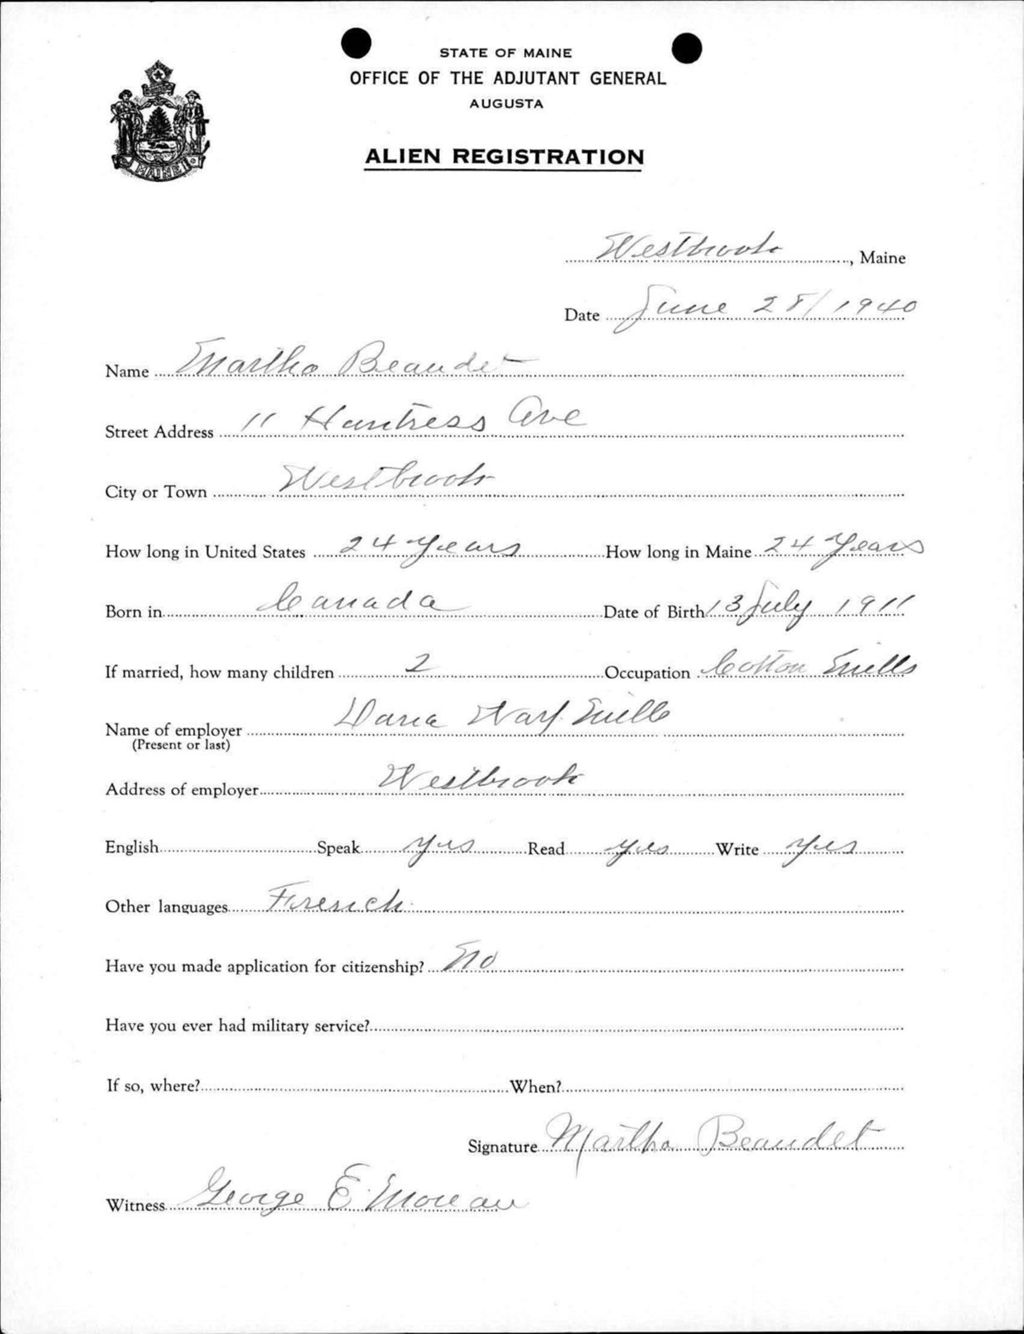 STATE OF MAINE
OFFICE OF THE ADJUTANT GENERAL
AUGUSTA
ALIEN REGISTRATION
MAINE
Westbrook, Maine
Date June 28/1940
Name Martha Beaudet
Street Address 11 Huntress Ave
City or Town Westbrook
How long in United States 24 years How long in Maine 24 years
Born in Canada Date of Birth 13 July 1911
If married, how many children 2 Occupation Cotton Mills
Name of employer Dana Warp Mills
(Present or last)
Address of employer Westbrook
English Speak yes Read yes Write yes
Other languages French
Have you made application for citizenship? No
Have you ever had military service?
If so, where? When?
Signature Martha Beaudet
Witness George E. Moreau